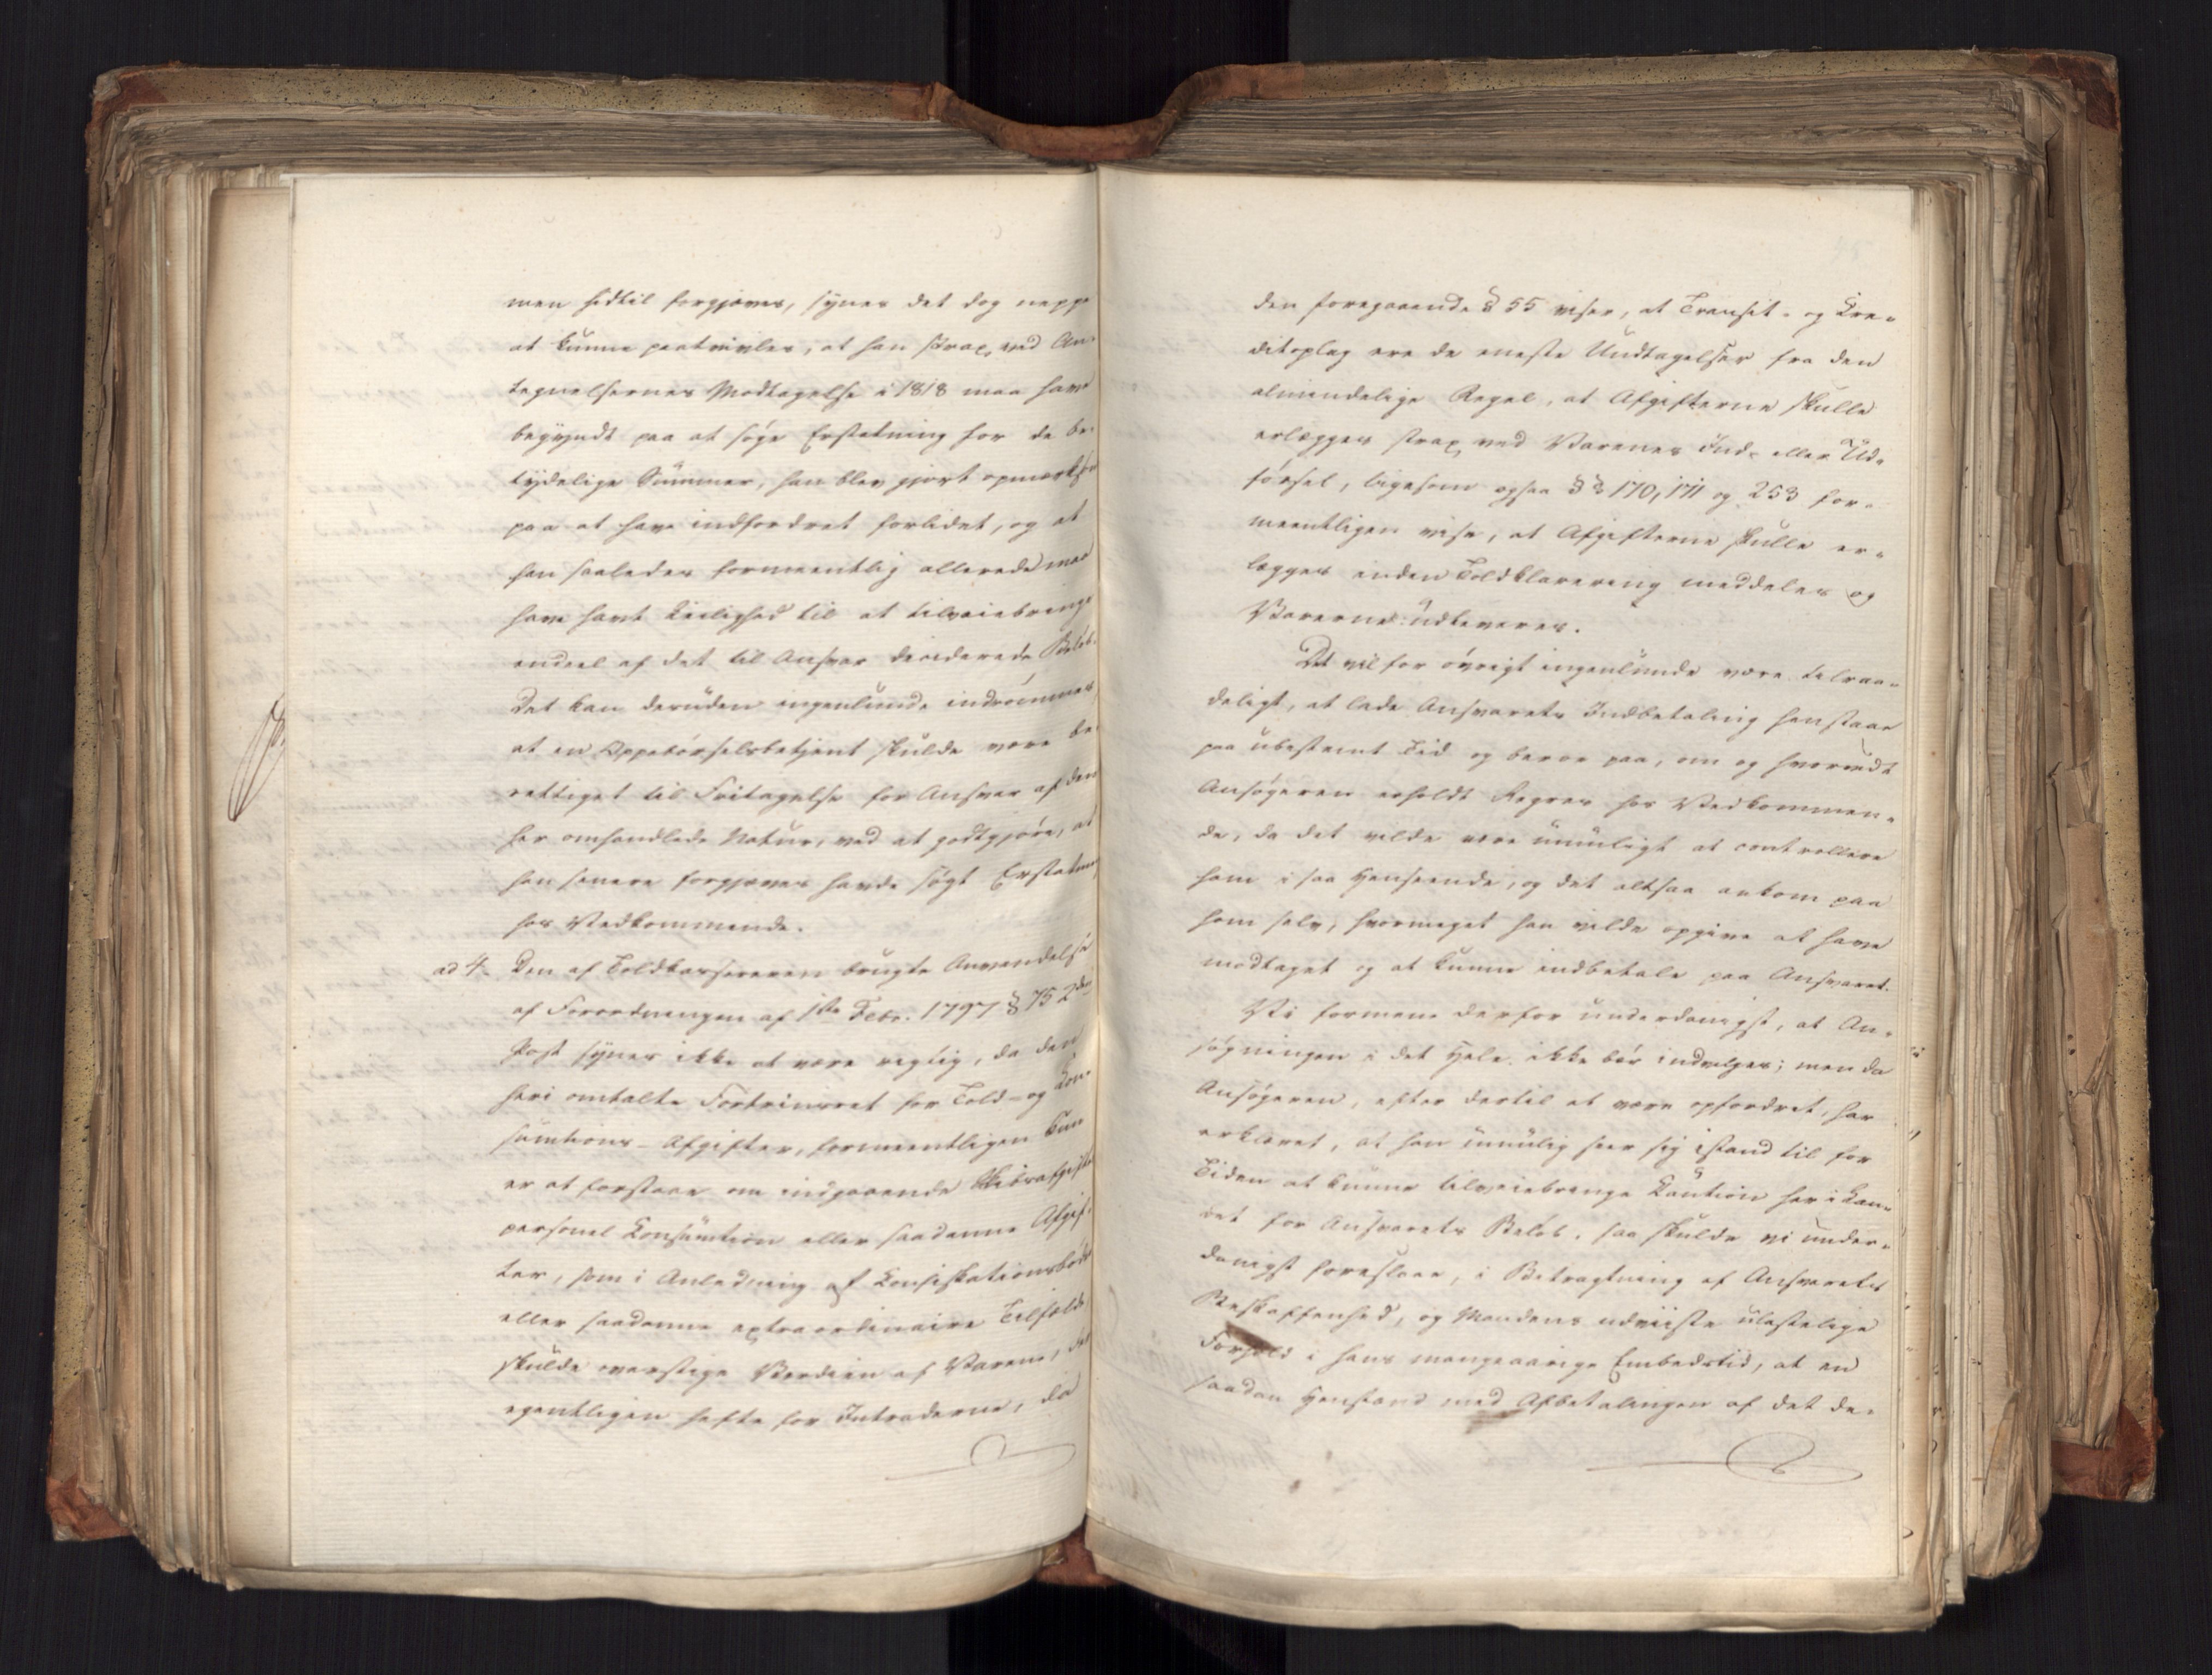 men hidtil forgjæves, synes det dog neppe
at kunne paatvivles, at han strax ved An-
tegnelsernes Modtagelse i 1818 maa have
begyndt paa at søge Erstatning for de be-
tydelige Summer, han blev gjort opmærksom
paa at have indfordret forlidet, og at
han saaledes formeentlig allerede maa
have havt Leilighed til at tilveiebringe
endeel af det til Ansvar deciderede Beløb.
Det kan desuden ingenlunde indrømmes,
at en Oppebørselsbetjent skulde være be-
rettiget til Fritagelse for Ansvar af den
her omhandlede Natur, ved at godtgjøre, at
han senere forgjæves havde søgt Erstatning
hos Vedkommende.
ad 4. Den af Toldkassereren brugte Anvendelse
af Forordningen af 1ste Febr. 1797 § 75 2den
Post synes ikke at være rigtig, da den
heri omtalte Fortrinsret for Told- og Kon-
sumtions-Afgifter, formeentligen kun
er at forstaae om indgaaende Skibsafgifter
personel Konsumtion eller saadanne Afgif-
ter, som i Anledning af Konfiskationsbøder
eller saadanne extraordinaire Tilfælde
skulde overstige Værdien af Varene, der
egentligen hefte for Intraderne, da
den foregaaende § 55 viser, at Transit- og Kre-
ditoplag ere de eneste Undtagelser fra den
almindelige Regel, at Afgifterne skulle
erlægges strax ved Varenes Ind- eller Ud-
førsel, ligesom ogsaa §§ 170, 171 og 253 for-
meentligen vise, at Afgifterne skulle er-
lægges inden Toldklarering meddeles og
Varerne udleveres.
Det vil for øvrigt ingenlunde være tilraa-
deligt, at lade Ansvarets Indbetaling henstaae
paa ubestemt Tid og beroe paa, om og hvorvidt
Ansøgeren erholdt Regres hos Vedkommen-
de, da det vilde være umuligt at controllere
ham i saa Henseende, og det altsaa ankom paa
ham selv, hvormeget han vilde opgive at have
modtaget og at kunne indbetale paa Ansvaret.
Vi formene derfor underdanigst, at An-
søgningen i det Hele ikke bør indvilges; men da
Ansøgeren, efter dertil at være opfordret, har
erklæret, at han umulig seer sig istand til for
Tiden at kunne tilveiebringe Kaution her i Lan-
det for Ansvarets Beløb, saa skulde vi under-
danigst foreslaae, i Betragtning af Ansvarets
Beskaffenhed, og Mandens udviiste ulastelige
Forhold i hans mangeaarige Embedstid, at en
saadan Henstand med Afbetalingen af det de-